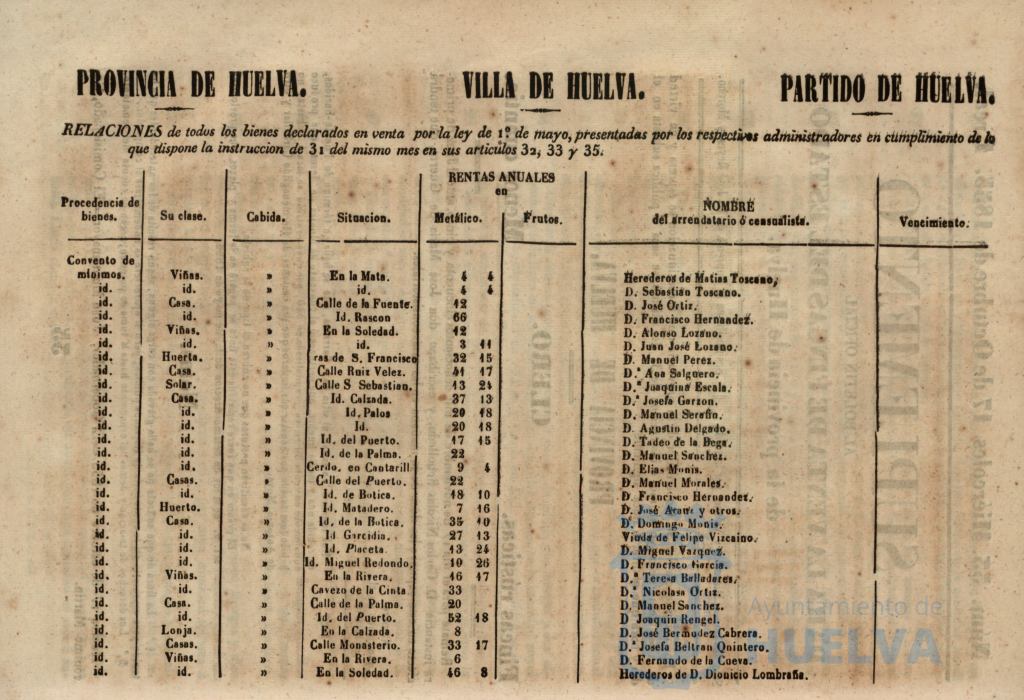 PROVINCIA DE HUELVA. VILLA DE HUELVA. PARTIDO DE HUELVA.
RELACIONES de todos los bienes declarados en venta por la ley de 1º de mayo, presentadas por los respectivos administradores en cumplimiento de lo
que dispone la instruccion de 31 del mismo mes en sus articulos 32, 33 y 35.
RENTAS ANUALES
en
Procedencia de bienes. Su clase. Cabida. Situacion. Metálico. Frutos. NOMBRE del arrendatario ó censualista. Vencimiento.
Convento de
mínimos. Viñas. » En la Mata. 4 4 Herederos de Matias Toscano,
id. id. » id. 4 4 D. Sebastian Toscano.
id. Casa. » Calle de la Fuente. 12 D. José Ortiz.
id. id. » Id. Rascon 66 D. Francisco Hernandez.
id. Viñas. » En la Soledad. 12 D. Alonso Lozano.
id. id. » id. 3 11 D. Juan José Lozano.
id. Huerta. » ras de S. Francisco 32 15 D. Manuel Perez.
id. Casa. » Calle Ruiz Velez. 41 17 D.ª Ana Salguero.
id. Solar. » Calle S Sebastian. 13 24 D.ª Joaquina Escala.
id. Casa. » Id. Calzada. 37 13 D.ª Josefa Garzon.
id. id. » Id. Palos 20 18 D. Manuel Serafin.
id. id. » Id. 20 18 D. Agustin Delgado.
id. id. » Id. del Puerto. 17 15 D. Tadeo de la Bega.
id. id. » Id. de la Palma. 22 D. Manuel Sanchez.
id. id. » Cerdo. en Cantarill 9 4 D. Elias Monis.
id. Casas. » Calle del Puerto. 22 D. Manuel Morales.
id. id. » Id. de Botica. 18 10 D. Francisco Hernandez.
id. Huerto. » Id. Matadero. 7 16 D. José y otros.
id. Casa. » Id. de la Botica. 35 10 D. Domingo Monis.
id. id. » Id Garcidia. 27 13 Viuda de Felipe Vizcaino.
id. id. » Id. Placeta. 13 24 D. Miguel Vazquez.
id. id. » Id. Miguel Redondo. 10 26 D. Francisco Garcia.
id. Viñas. » En la Rivera. 16 17 D.ª Teresa Balladares.
id. id. » Cavezo de la Cinta 33 D.ª Nicolasa Ortiz.
id. Casa. » Calle de la Palma. 20 D. Manuel Sanchez.
id. id. » Id. del Puerto. 52 18 D Joaquin Rengel.
id. Lonja. » En la Calzada. 8 D. José Bermudez Cabrera.
id. Casas. » Calle Monasterio. 33 17 D.ª Josefa Beltran Quintero.
id. Viñas. » En la Rivera. 6 D. Fernando de la Cueva.
id. id. » En la Soledad. 46 8 Herederos de D. Dionicio Lombraña.
Ayuntamiento de
HUELVA